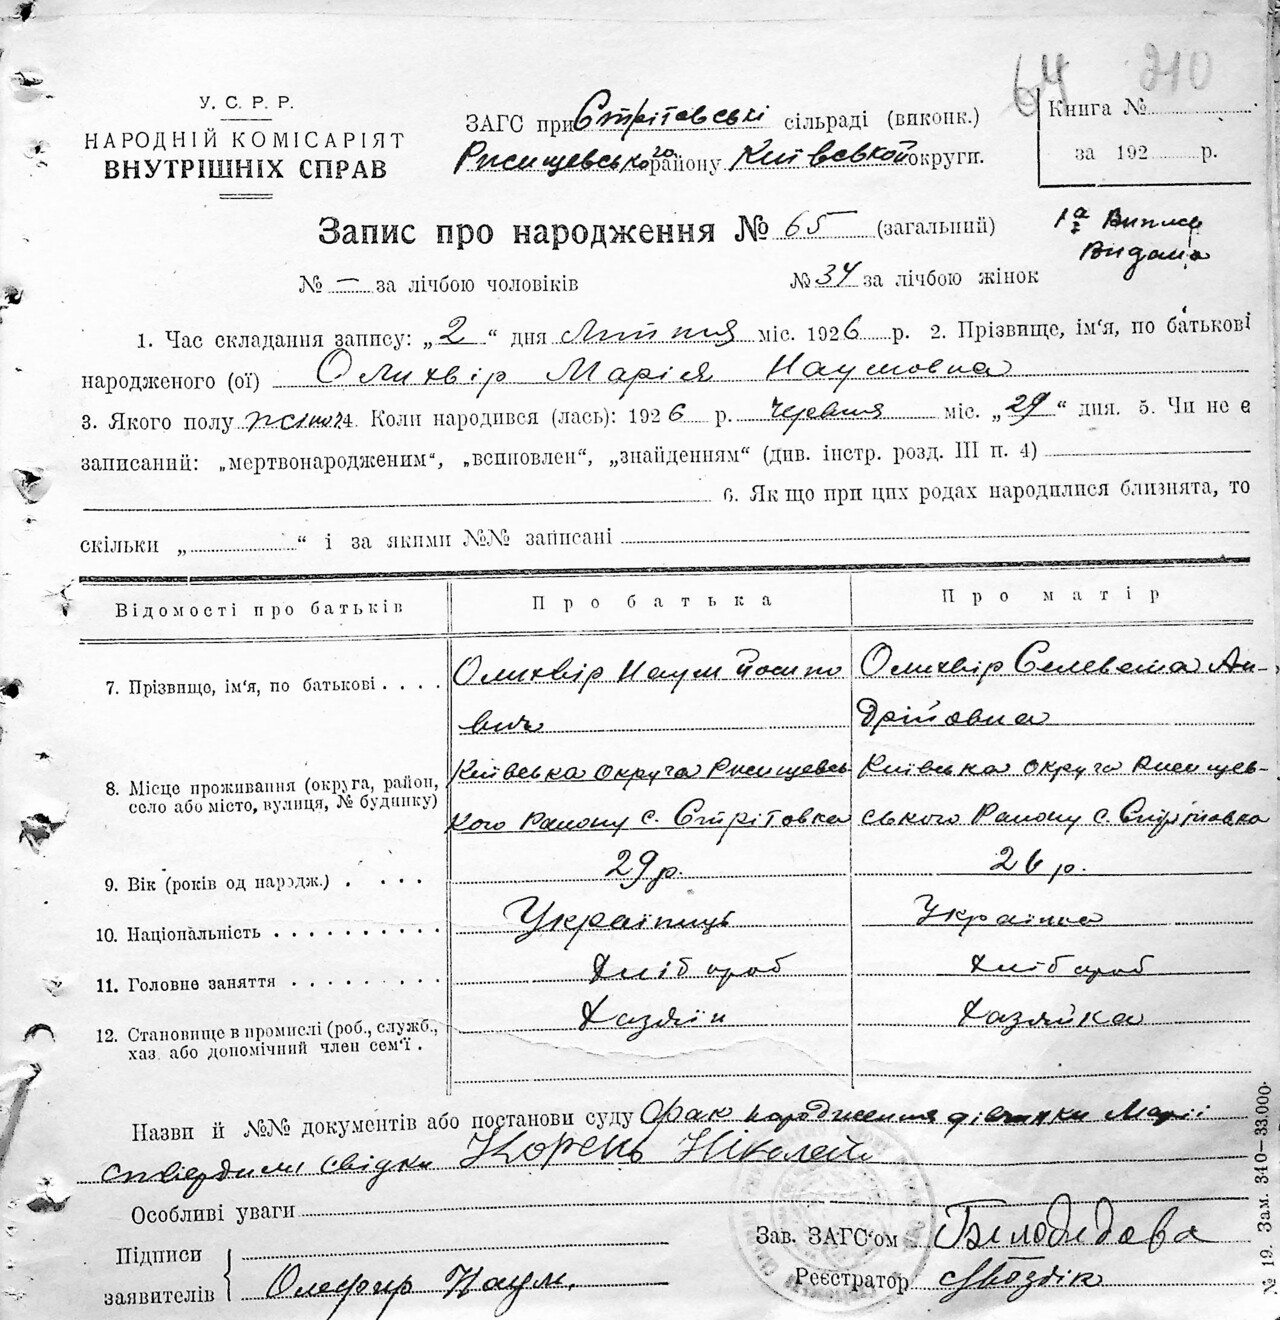 64 210
У. С. Р. Р.
НАРОДНІЙ КОМІСАРІЯТ
ВНУТРІШНІХ СПРАВ
ЗАГС при Стрітовські сільраді (виконк.)
Ржищевського району Київськой округи.
Книга №
за 192 р.
Запис про народження № 65 (загальний)
1а Випись
Видана
№ — за лічбою чоловіків № 34 за лічбою жінок
1. Час складання запису: „2“ дня Липня міс. 1926 р. 2. Прізвище, ім‘я, по батькові
народженого (ої) Олихвір Марія Наумовна
3. Якого полу жіноч 4. Коли народився (лась): 1926 р. Червня міс. „29“ дня. 5. Чи не є
записаний: „мертвонародженим“, „всиновлен“, „знайденням“ (див. інстр. розд. III п. 4)
6. Якщо при цих родах народилися близнята, то
скільки „ “ і за якими №№ записані
Відомості про батьків Про батька Про матір
7. Прізвище, ім‘я, по батькові . . . . Олихвір Наум Йосипо
вич
Олихвір Селевета Ан-
дрійовна
8. Місце проживання (округа, район,
село або місто, вулиця, № будинку)
Київська округа Ржищевсь
кого Району с. Стрітовка
Київська округа Ржищев-
ського Району с. Стрітовка
9. Вік (років од народж.) . . . . 29 р. 26 р.
10. Національність . . . . . . . . . . Українць Українка
11. Головне заняття . . . . . . . . . Хлібороб Хлібороб
12. Становище в промислі (роб., служб.,
хаз. або допомічний член сем‘ї .
Хазяїн Хазяйка
Назви й №№ документів або постанови суду Факт народження дівчинки Марії
ствердили свідки Корень Ніколай
Особливі уваги
Підписи
заявителів
Олефир Наум.
Зав. ЗАГС‘ом Білодідова
Реєстратор Гвоздік
№ 19. Зам. 340—33.000